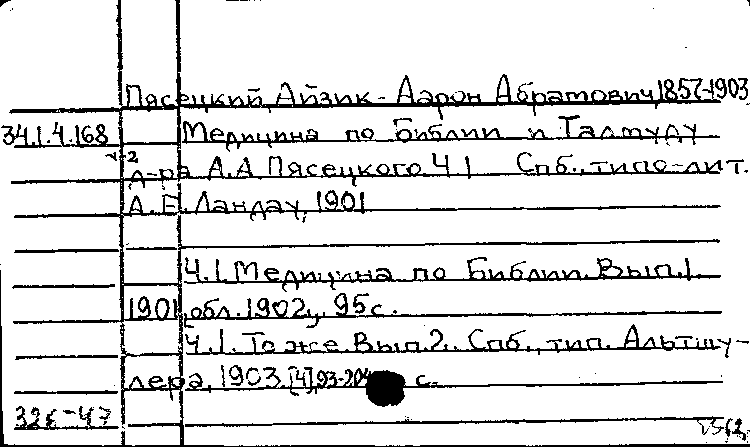 Пясецкий, Айзик-Аарон Абратович, 1857-1903
34.1.4.168 Медицина по Библии и Талмуду
1-2
д-ра А.А Пясецкого. Ч 1 Спб., типо-лит.
А.Е. Ландау, 1901
Ч.1 Медицина по Библии. Вып.1.
1901, [обл. 1902], 95 с.
Ч.1. То же. Вып.2. Спб., тип. Альтшу-
лера, 1903. [4], 93-204 с.
32б-47